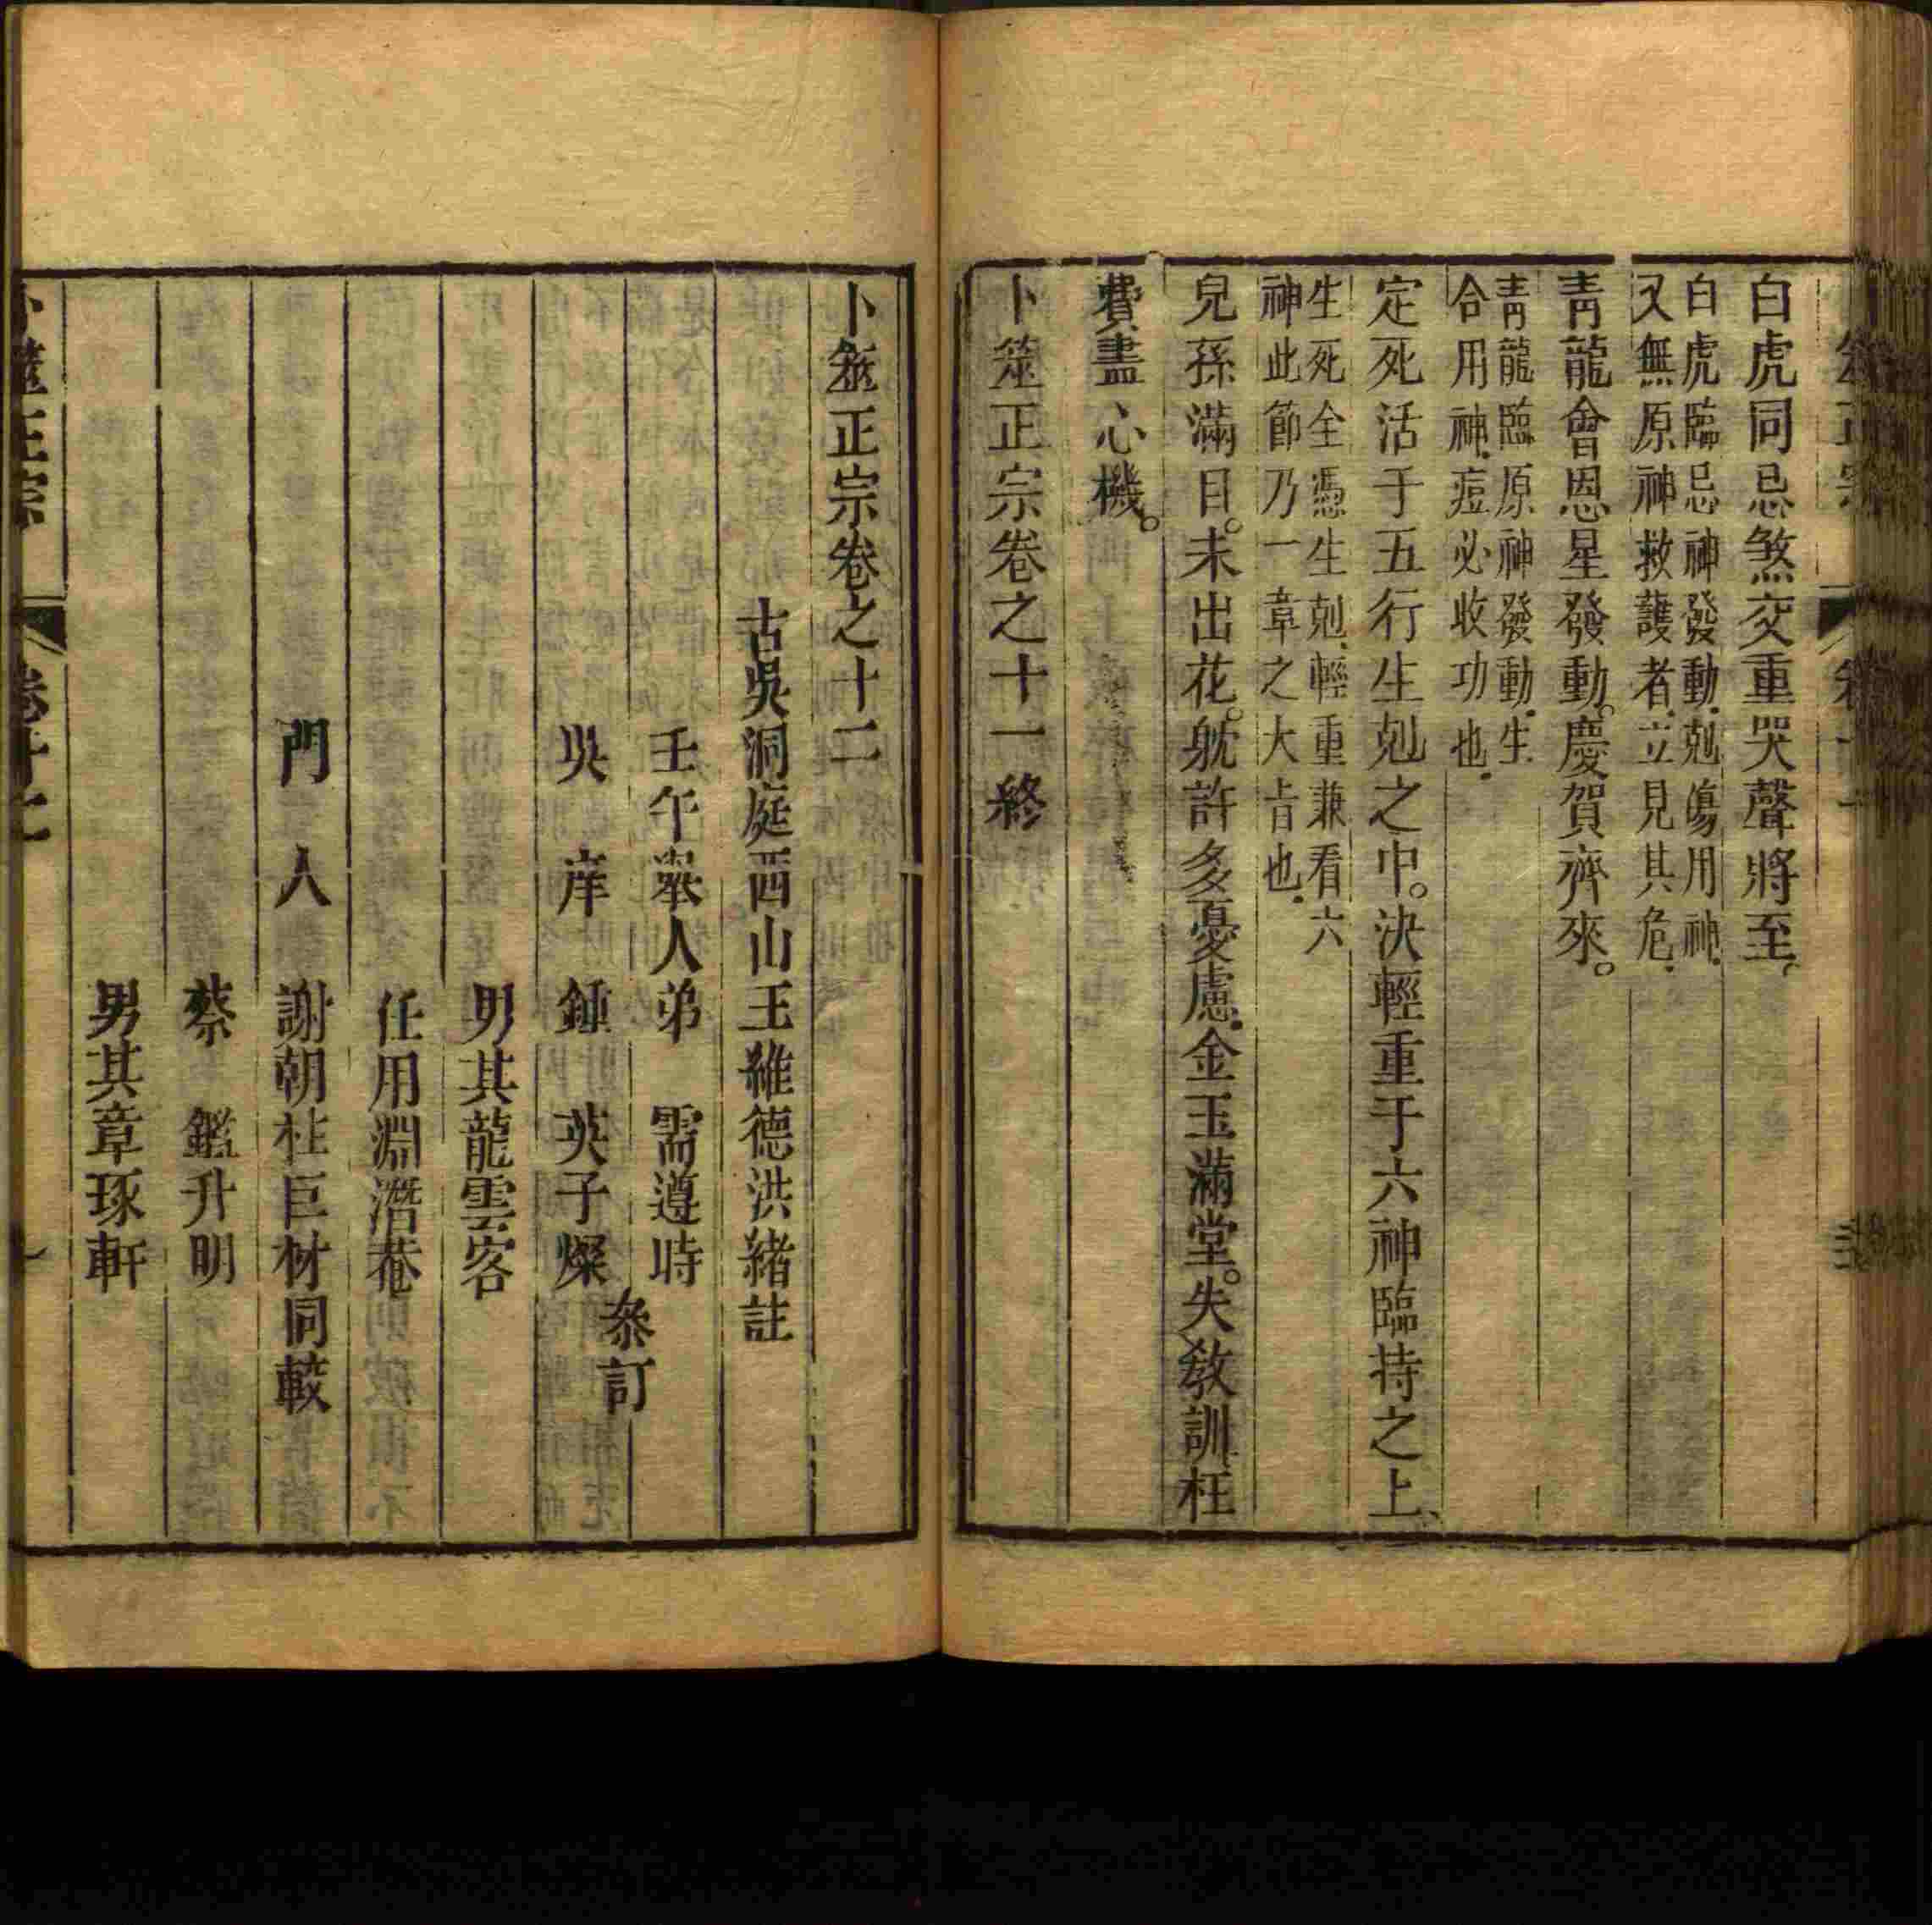 白虎同忌煞交重哭聲將至
白虎臨忌神發動剋傷用神
又無原神救護者立見其危
青龍會恩星發動慶賀齊來
青龍臨原神發動生
合用神痘必收功也
定死活于五行生剋之中決輕重于六神臨持之上
生死全憑生剋輕重兼看六
神此節乃一章之大旨也
兒孫滿目未出花躭許多憂慮金玉滿堂失教訓枉
費盡心機
卜筮正宗卷之十一終
卜筮正宗卷之十二
古吳洞庭西山王維德洪緒註
壬午舉人弟 需遵時
吳 庠 鍾 英子燦
叅訂
男其龍雲客
任用淵潛菴
門人 謝朝柱巨材同較
蔡 鑑升明
男其章琢軒